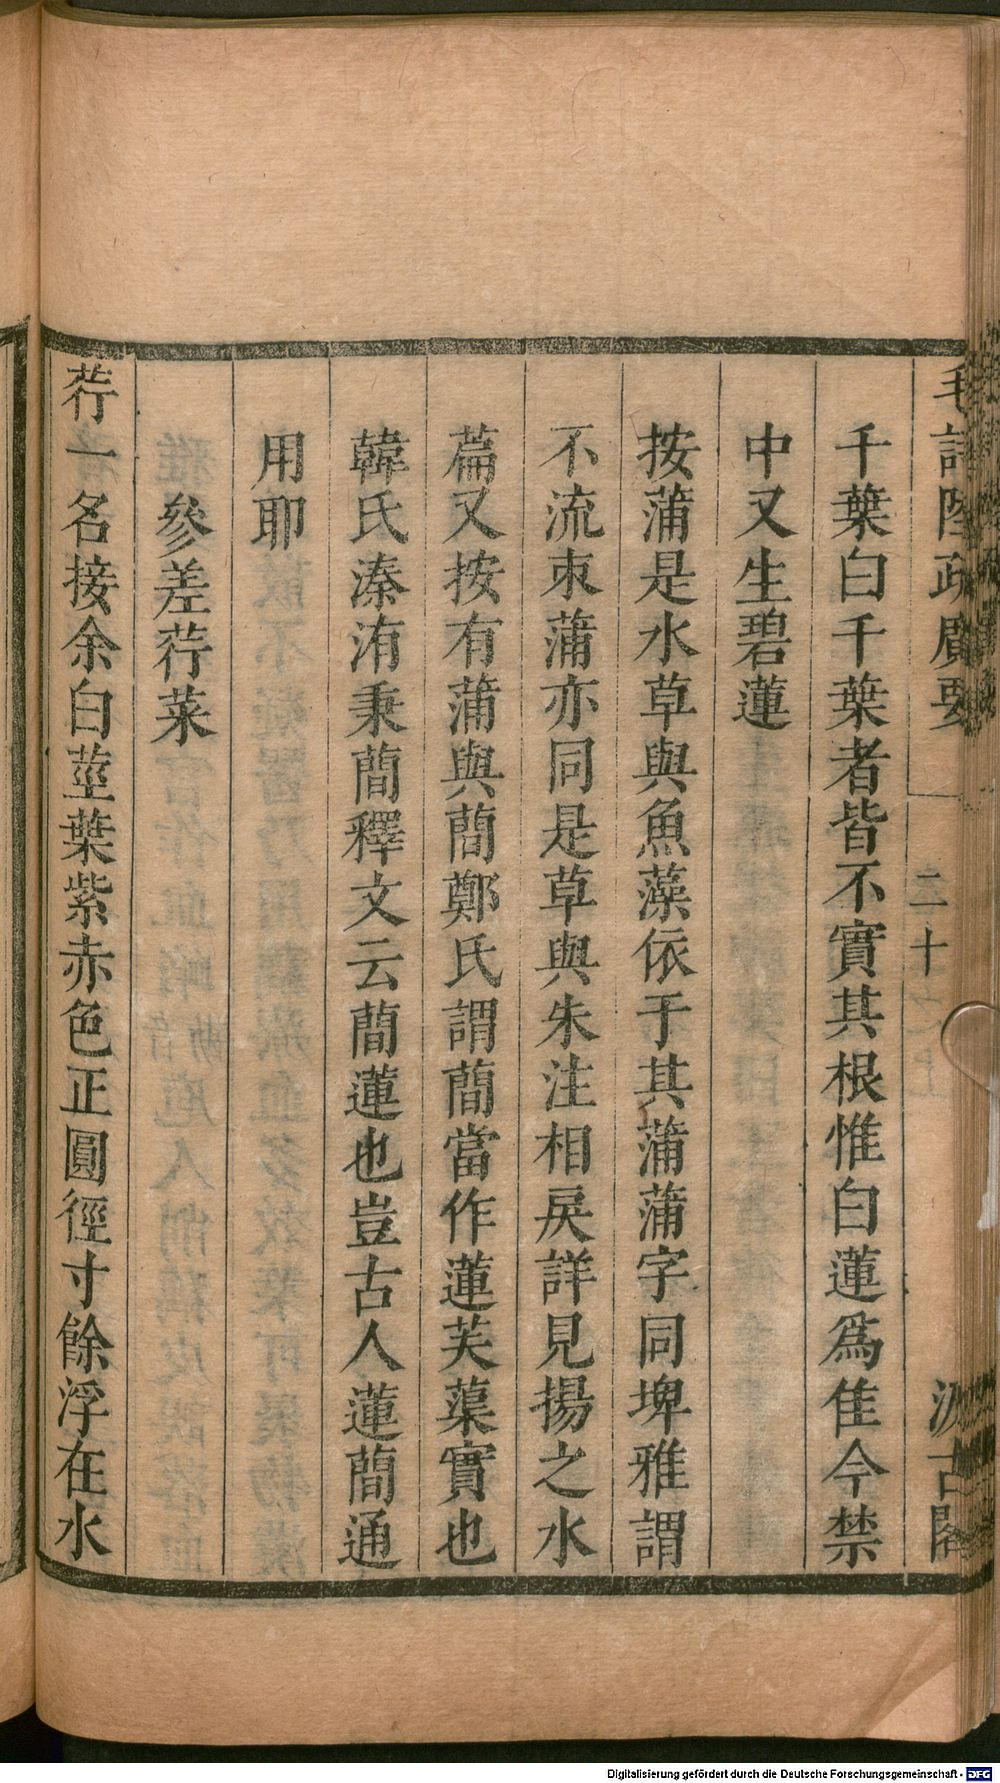 毛詩陸疏廣要
二十
汲古閣
千葉白千葉者皆不實其根惟白蓮爲佳今禁
中又生碧蓮
按蒲是水草與魚藻依于其蒲蒲字同埤雅謂
不流束蒲亦同是草與朱注相戾詳見揚之水
篇又按有蒲與蕳鄭氏謂蕳當作蓮芙蕖實也
韓氏溱洧秉蕳釋文云蕳蓮也豈古人蓮蕳通
用耶
參差荇菜
荇一名接余白莖葉紫赤色正圓徑寸餘浮在水
Digitalisierung gefördert durch die Deutsche Forschungsgemeinschaft - DFG